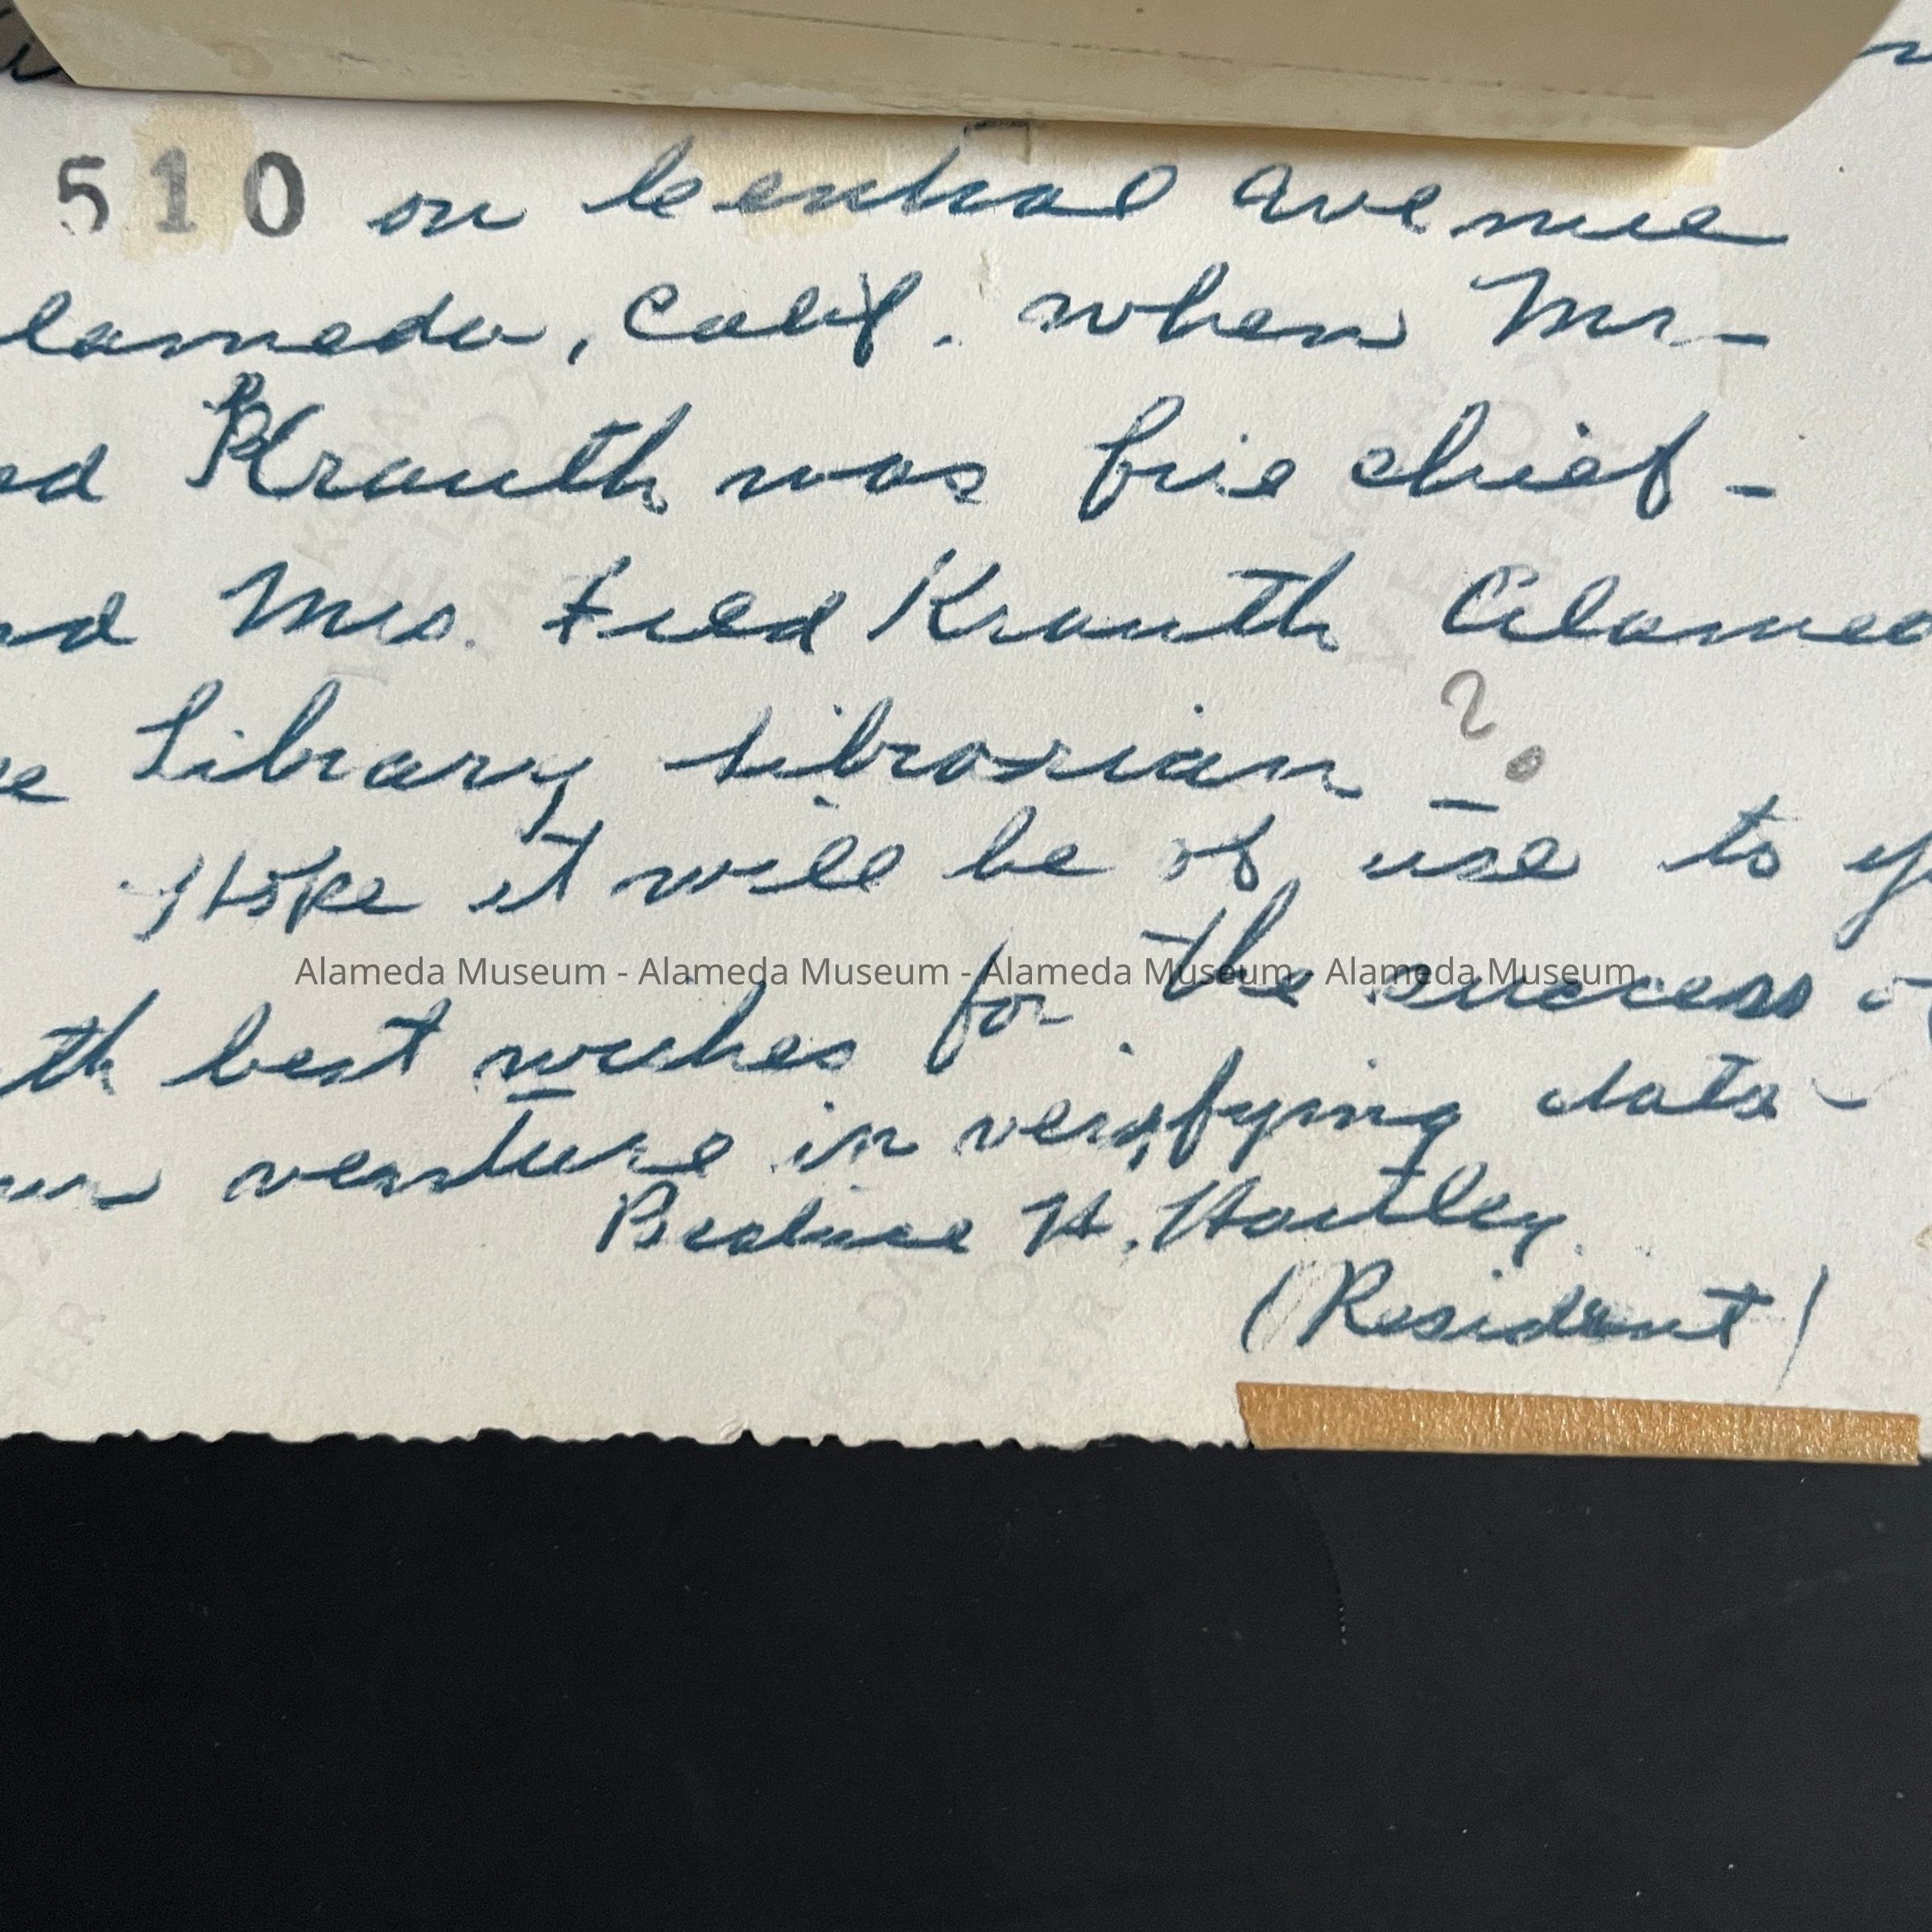 510 on Central Avenue
lameda, Calif. when Mr-
ed Krauth was fire chief -
nd Mrs. Fred Krauth Alamed
Library Librarian - ?
Hope it will be of use to y
th best wishes for the success o
venture in verifying data -
Beatrice H. Hartley.
(Resident)
Alameda Museum - Alameda Museum - Alameda Museum - Alameda Museum